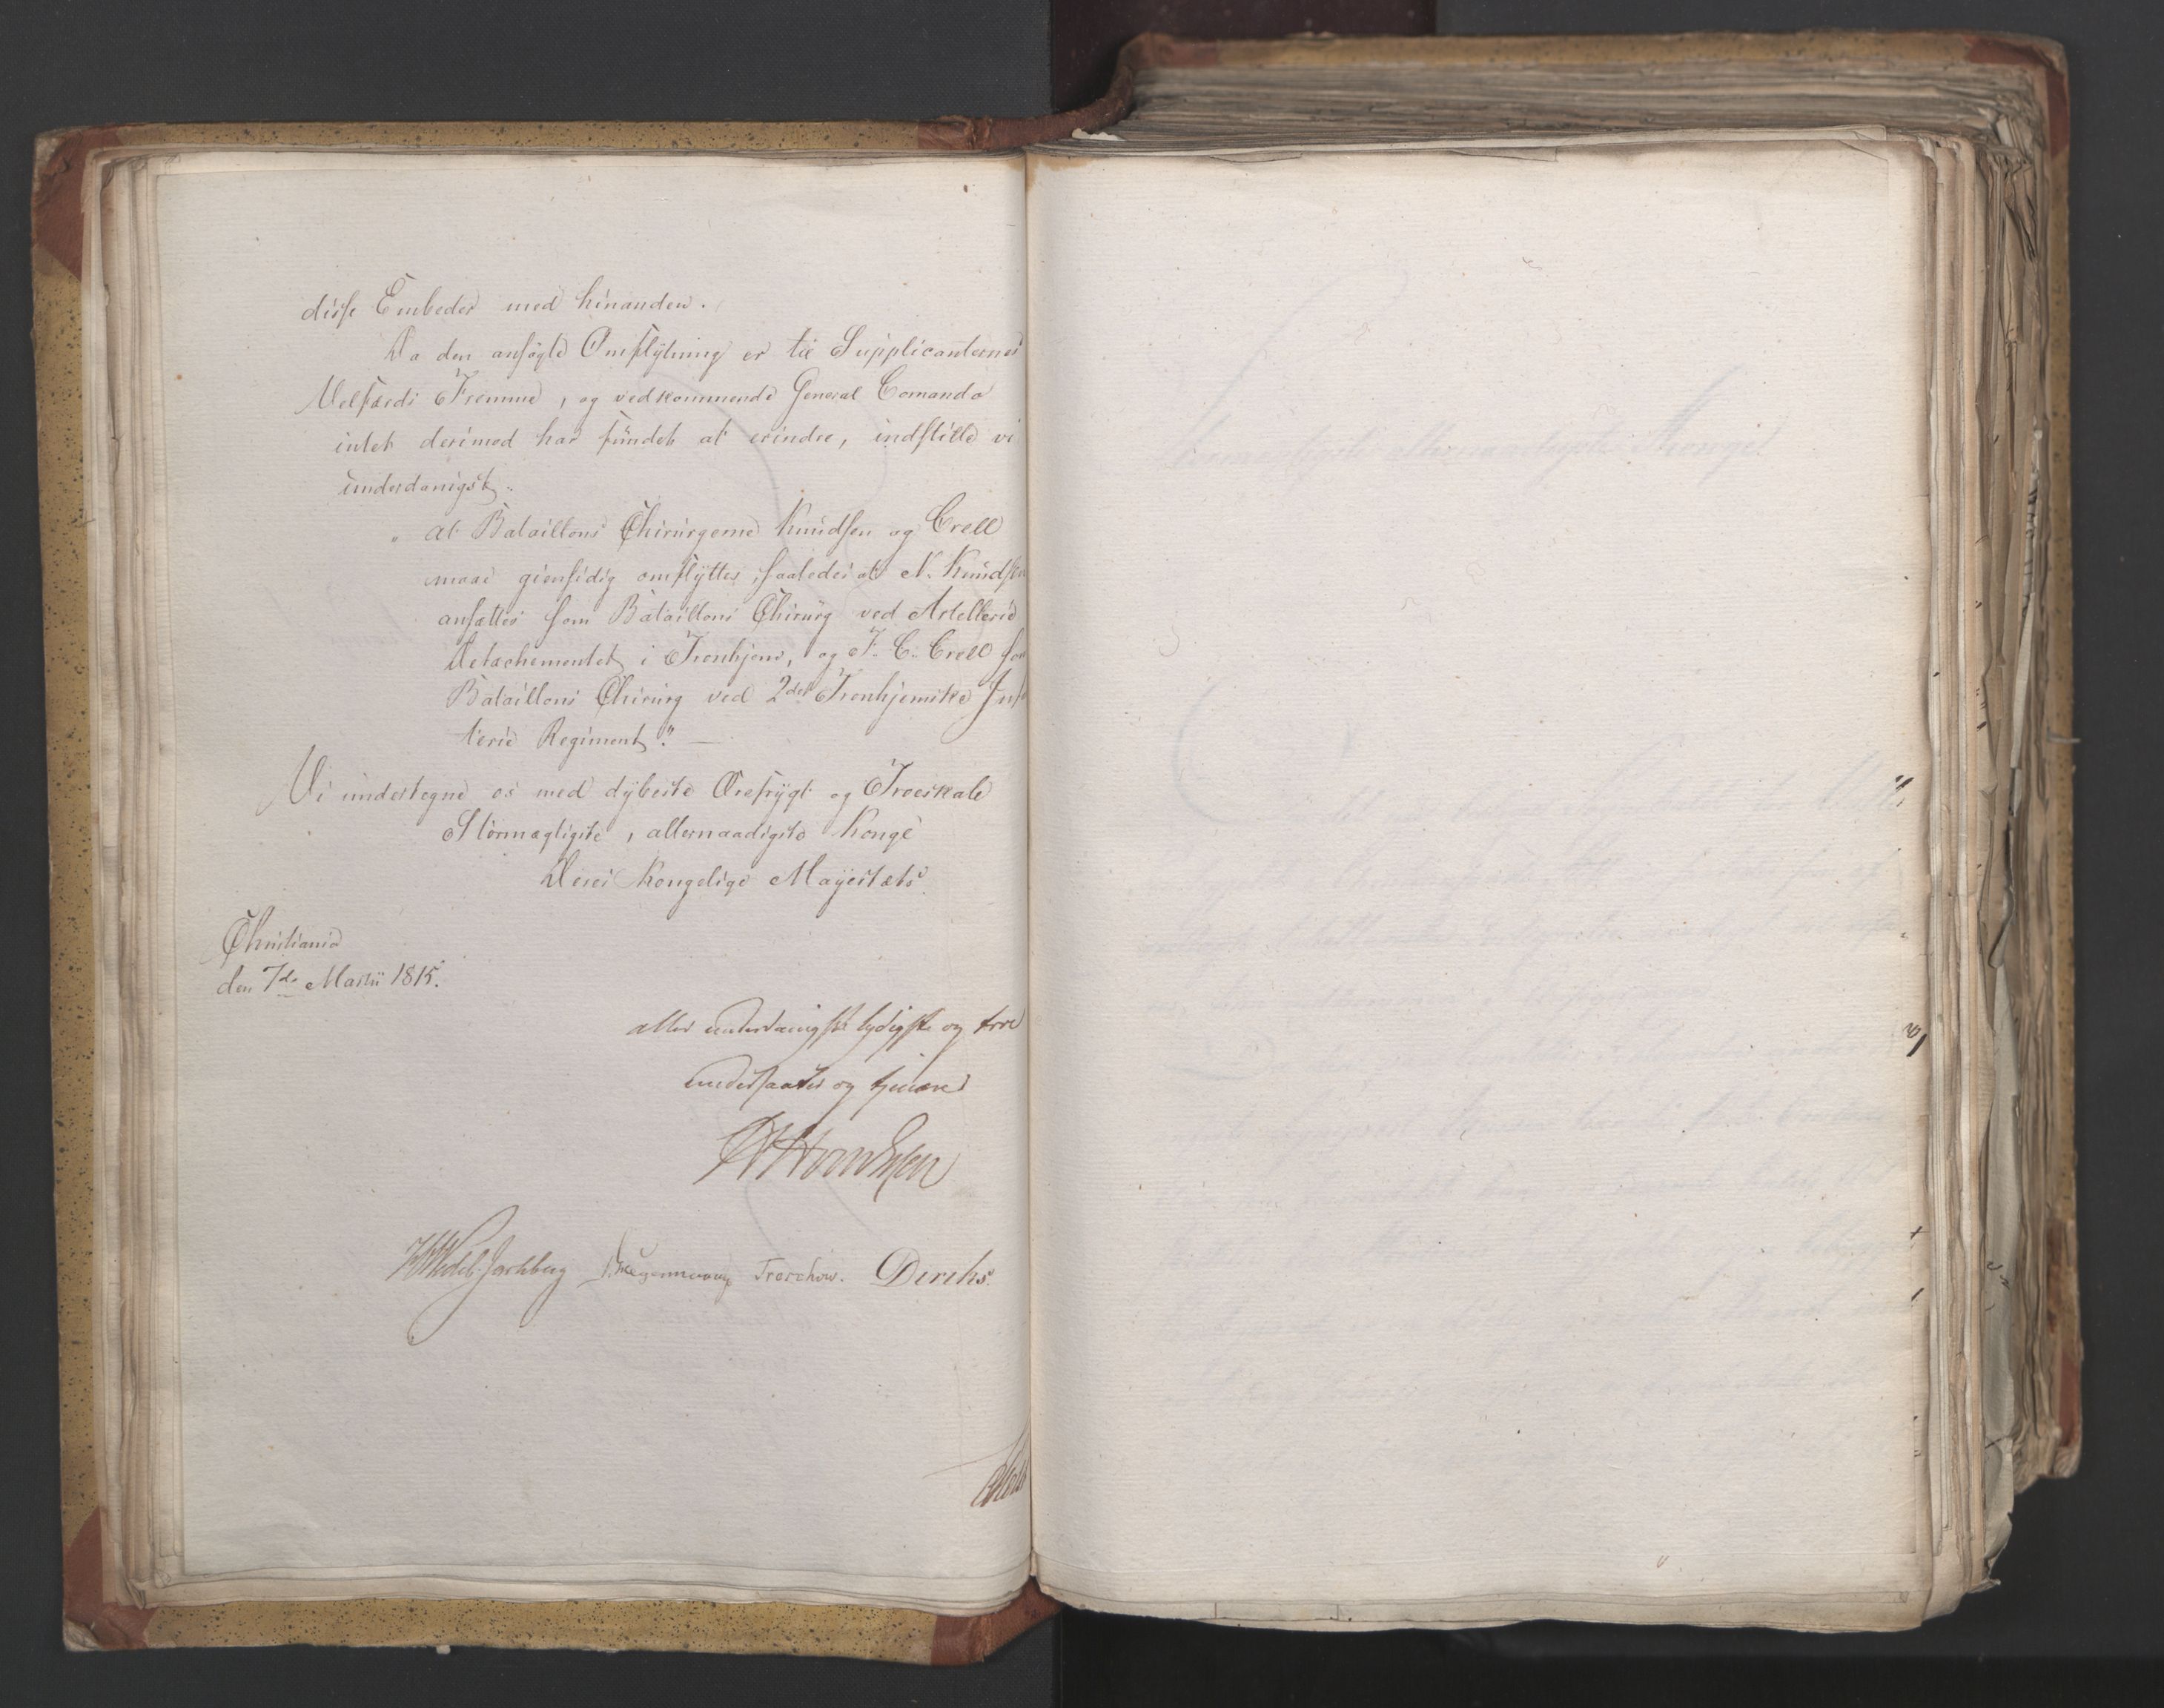 disse Embeder med hinanden.
Da den ansögte Omflÿtning er til Supplicanternes
Velfærds Fremme, og vedkommende General Comando
intet derimod har fundet at erindre, indstille vi
underdanigst:
" at Bataillons Chirurgerne Knudsen og Crell
maae giensidig omflÿttes, saaledes at N. Knudsen
ansættes som Bataillons Chirurg ved Artellerie
Detachementet i Tronhjem, og F. C. Crell som
Bataillons Chirurg ved 2det Tronhjemske Inf
terie Regiment." —
Vi undertegne os med dÿbeste Ærefrÿgt og Troeskab
Stormægtigste, allernaadigste Konge
Deres Kongelige Mayestæts
Christiania
den 7de Martii 1815.
aller underdanigste lydigste og troe
undersaatter og tjenere
Wedel-Jarlsberg
Treschow. Diriks.